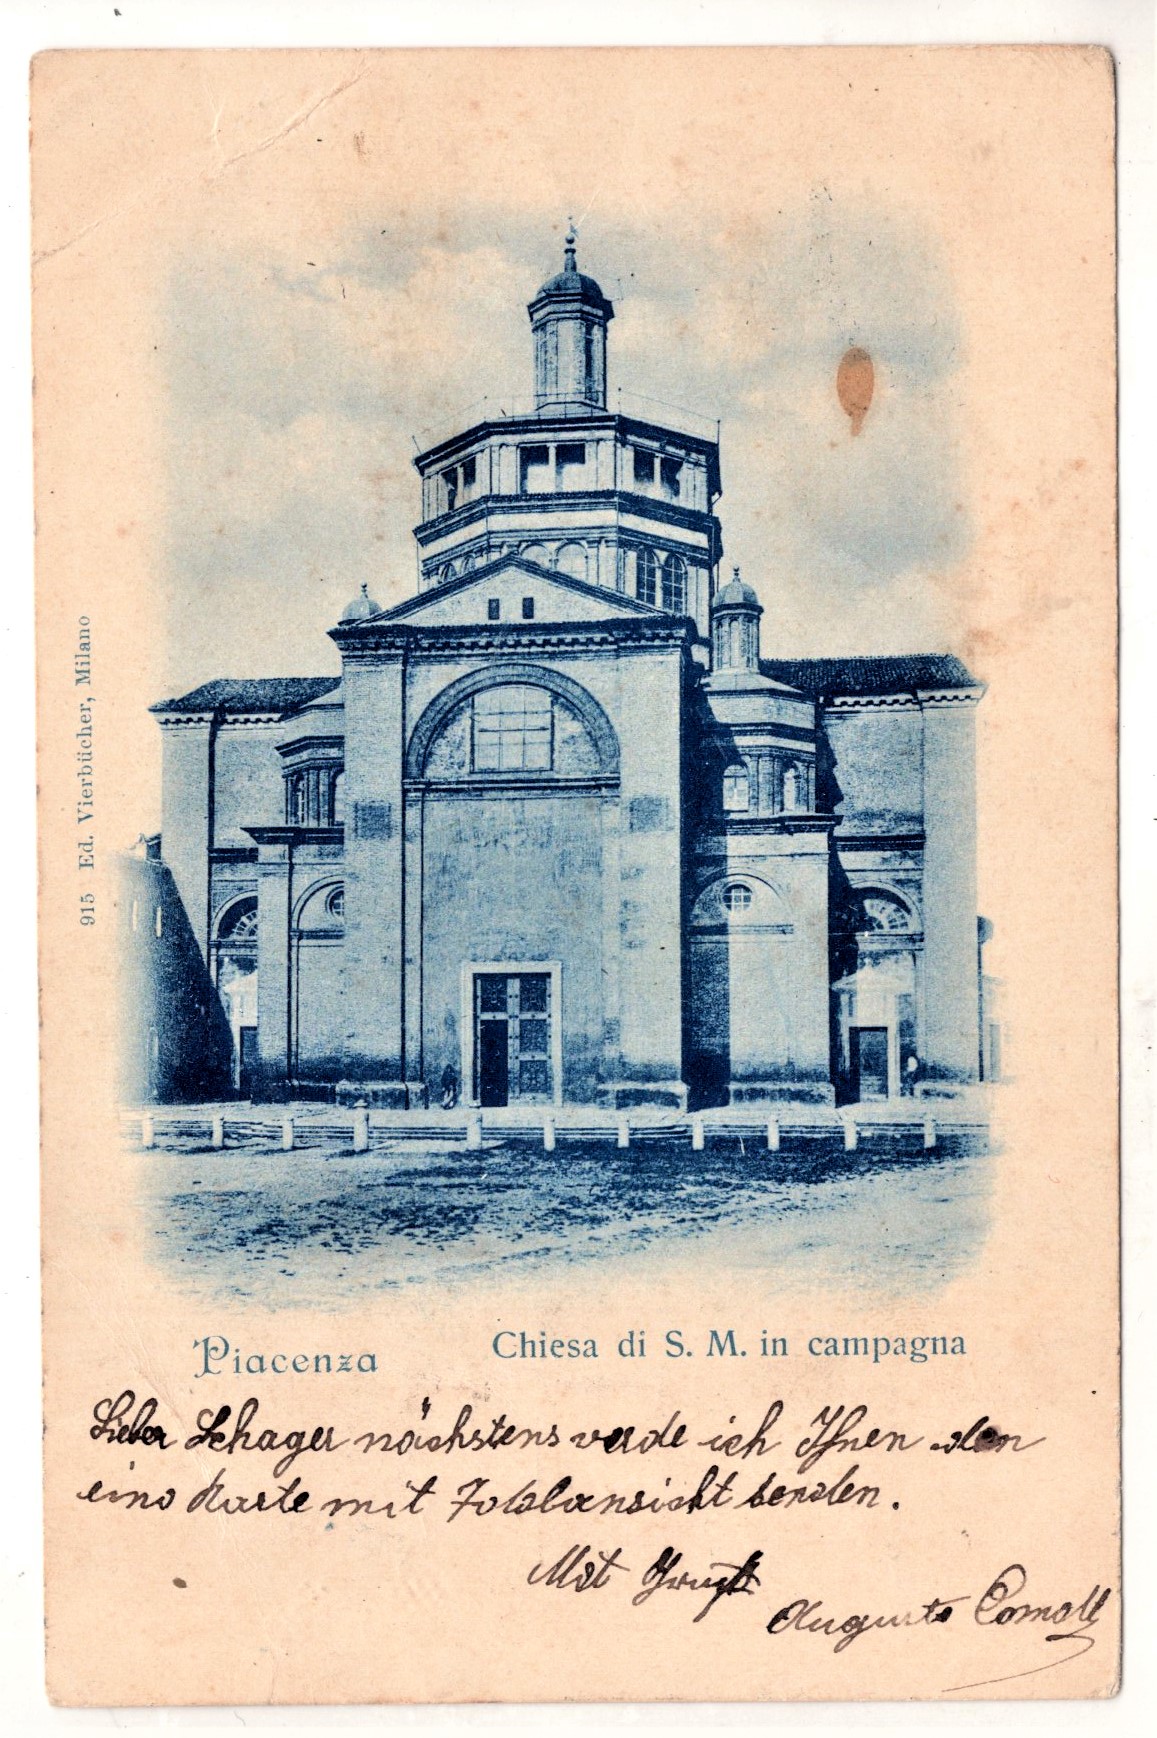 915 Ed. Vierbücher, Milano
Piacenza
Chiesa di S. M. in campagna
Lieber Schager nächstens werde ich Ihnen den
eine Karte mit Totalansicht senden.
Mit Gruß
Augusto